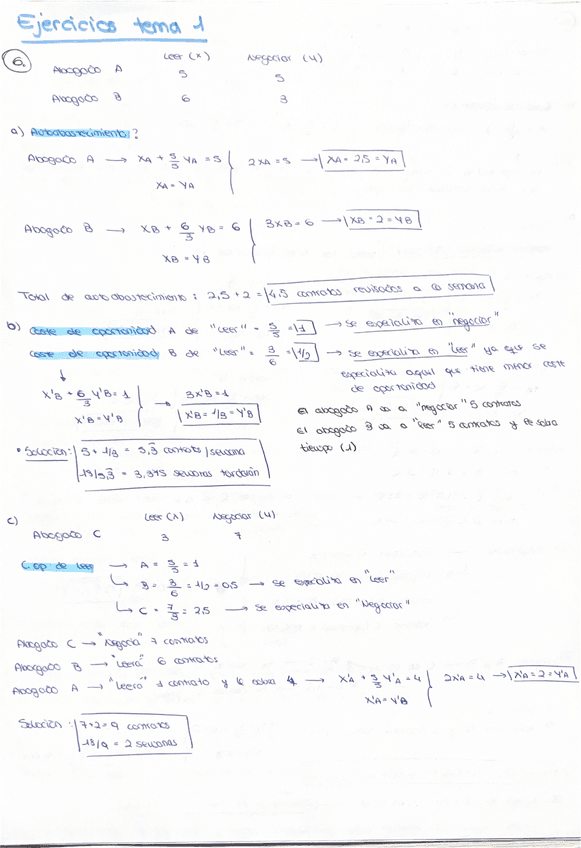 Ejercicios tema 1
6.
Leer (x) Negociar (y)
Abogado A 5 5
Abogado B 6 3
a) Autoabastecimiento?
Abogado A → XA + 5/5 YA = 5
XA = YA
2XA = 5 → XA = 2,5 = YA
Abogado B → XB + 6/3 YB = 6
XB = YB
3XB = 6 → XB = 2 = YB
Total de autoabastecimiento: 2,5 + 2 = 4,5 contratos revisados a la semana
b) Coste de oportunidad A de "Leer" = 5/5 = 1 → Se especializa en "negociar"
Coste de oportunidad B de "Leer" = 3/6 = 1/2 → Se especializa en "Leer" ya que se
especializa aquel que tiene menor coste
de oportunidad
X'B + 6/3 Y'B = 1
X'B = Y'B
→ 3X'B = 1
X'B = 1/3 = Y'B
El abogado A va a "negociar" 5 contratos
El abogado B va a "leer" 5 contratos y le sobra
tiempo (1)
• Solución: 5 + 1/3 = 5,3 contratos/semana
18/5,3 = 3,375 semanas tardarán
c)
Leer (1) Negociar (4)
Abogado C 3 7
C. op de leer → A = 5/5 = 1
↳ B = 3/6 = 1/2 = 0,5 → Se especializa en "Leer"
↳ C = 7/3 = 2,5 → Se especializa en "Negociar"
Abogado C → "Negocia" 7 contratos
Abogado B → "Leerá" 6 contratos
Abogado A → "Leerá" 1 contrato y le sobra 4 → X'A + 5/5 Y'A = 4
X'A = Y'B
2X'A = 4 → X'A = 2 = Y'A
Solución: 7+2 = 9 contratos
18/9 = 2 semanas